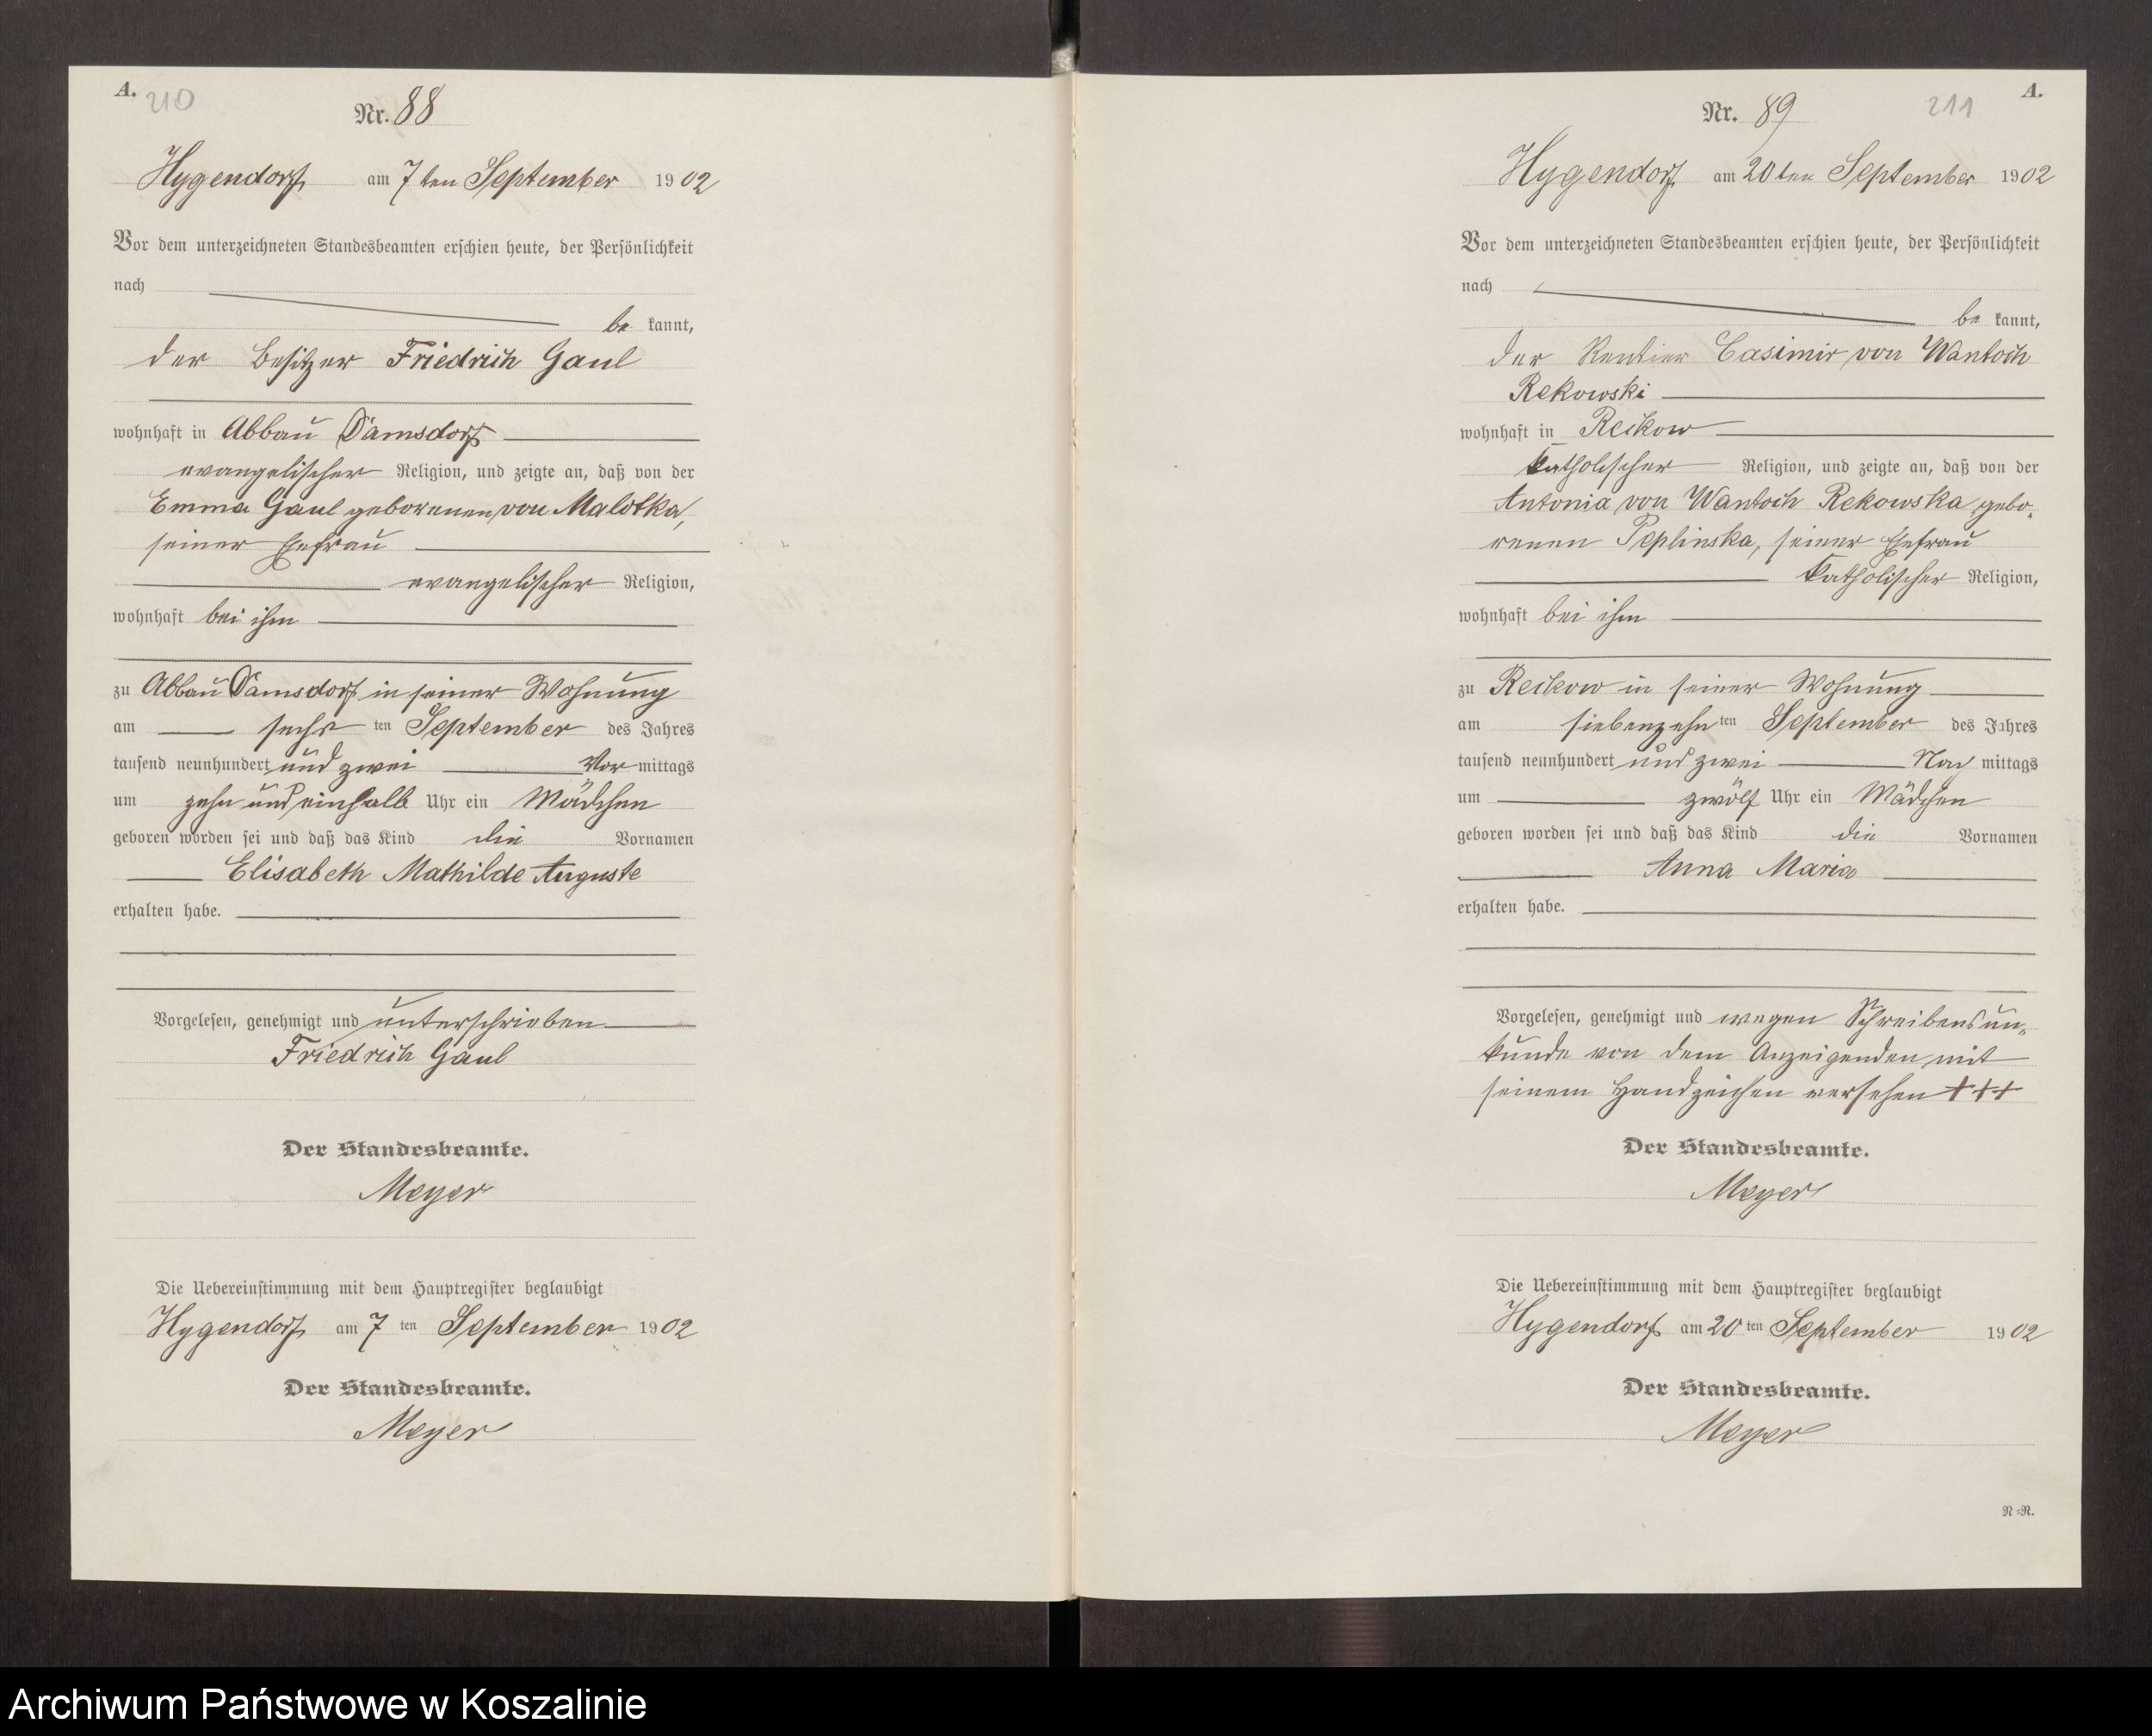 A.
210
Nr. 88
Hygendorf am 7ten September 1902
Vor dem unterzeichneten Standesbeamten erschien heute, der Persönlichkeit
nach
be kannt,
der Besitzer Friedrich Gaul
wohnhaft in Abbau Damsdorf
evangelischer Religion, und zeigte an, daß von der
Emma Gaul geborenen von Malotka,
seiner Ehefrau
evangelischer Religion,
wohnhaft bei ihm
zu Abbau Damsdorf in seiner Wohnung
am sechs ten September des Jahres
tausend neunhundert und zwei Vor mittags
um zehn und einhalb Uhr ein Mädchen
geboren worden sei und daß das Kind die Vornamen
Elisabeth Mathilde Auguste
erhalten habe.
Vorgelesen, genehmigt und unterschrieben
Friedrich Gaul
Der Standesbeamte.
Meyer
Die Uebereinstimmung mit dem Hauptregister beglaubigt
Hygendorf am 7 ten September 1902
Der Standesbeamte.
Meyer
A.
211
Nr. 89
Hygendorf am 20ten September 1902
Vor dem unterzeichneten Standesbeamten erschien heute, der Persönlichkeit
nach
be kannt,
der Rentier Casimir von Wantoch
Rekowski
wohnhaft in Reckow
katholischer Religion, und zeigte an, daß von der
Antonia von Wantoch Rekowska, gebo-
renen Peplinska, seiner Ehefrau
katholischer Religion,
wohnhaft bei ihm
zu Reckow in seiner Wohnung
am siebenzehn ten September des Jahres
tausend neunhundert und zwei Nach mittags
um zwölf Uhr ein Mädchen
geboren worden sei und daß das Kind die Vornamen
Anna Maria
erhalten habe.
Vorgelesen, genehmigt und wegen Schreibensun-
kunde von dem Anzeigenden mit
seinem Handzeichen versehen +++
Der Standesbeamte.
Meyer
Die Uebereinstimmung mit dem Hauptregister beglaubigt
Hygendorf am 20 ten September 1902
Der Standesbeamte.
Meyer
N=R.
Archiwum Państwowe w Koszalinie